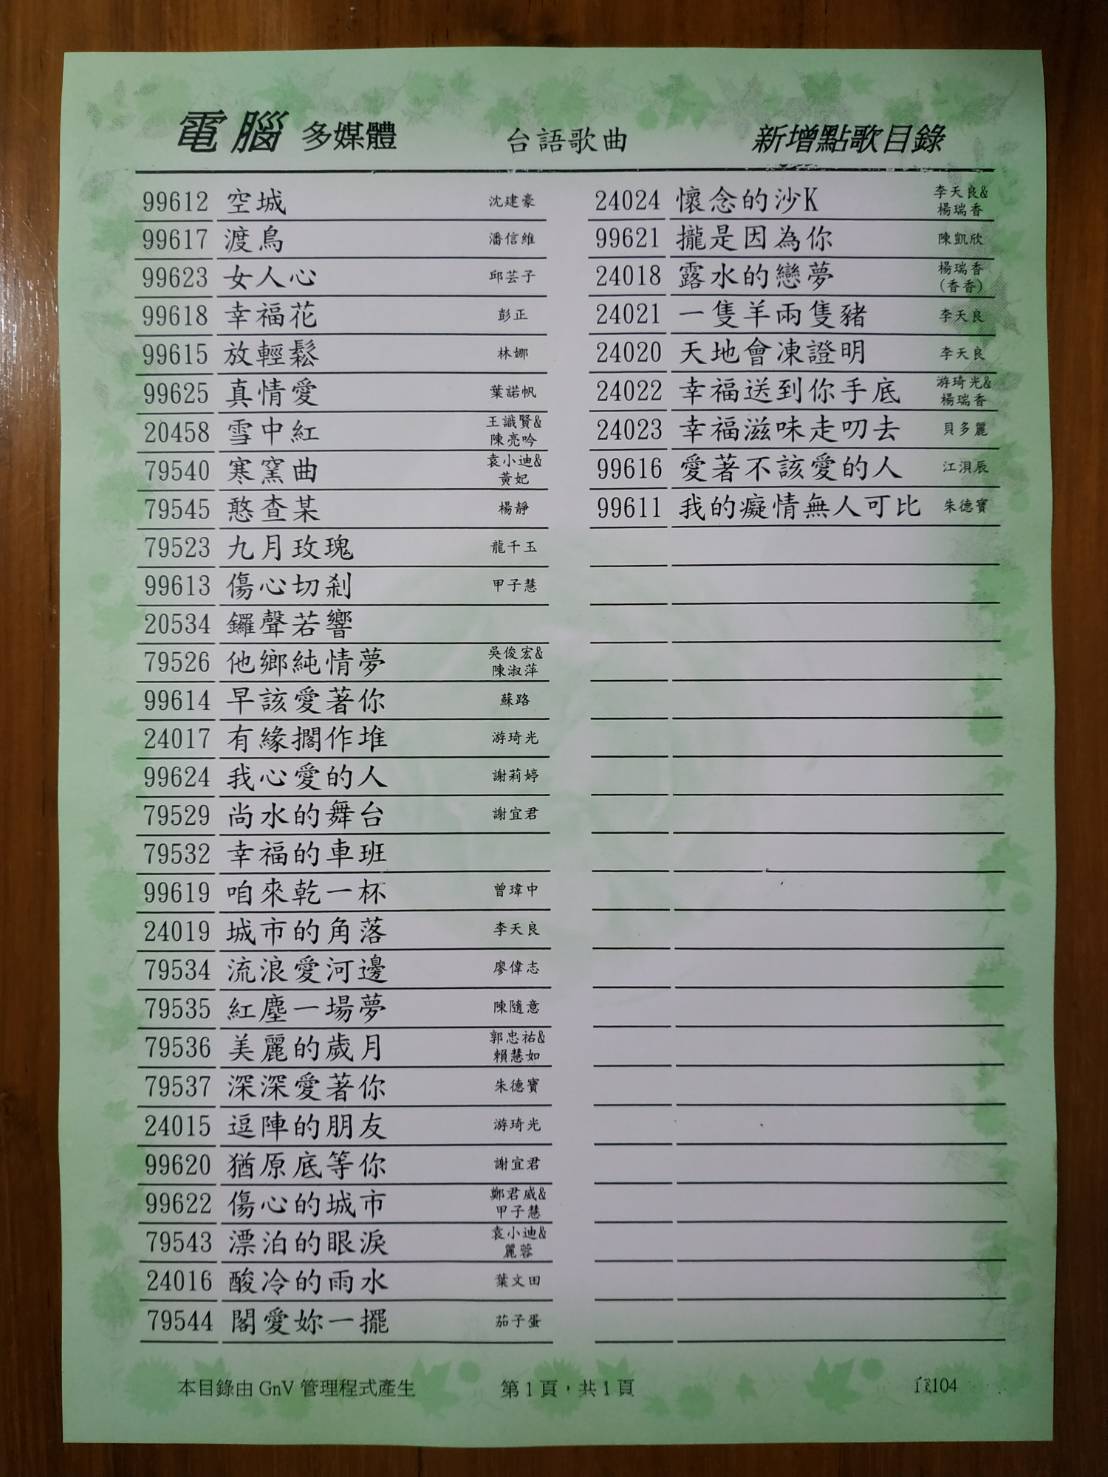 電腦 多媒體 台語歌曲 新增點歌目錄
99612 空城 沈建豪
99617 渡鳥 潘信維
99623 女人心 邱芸子
99618 幸福花 彭正
99615 放輕鬆 林娜
99625 真情愛 葉諾帆
20458 雪中紅 王識賢&
陳亮吟
79540 寒窯曲 袁小迪&
黃妃
79545 憨查某 楊靜
79523 九月玫瑰 龍千玉
99613 傷心切剎 甲子慧
20534 鑼聲若響
79526 他鄉純情夢 吳俊宏&
陳淑萍
99614 早該愛著你 蘇路
24017 有緣擱作堆 游琦光
99624 我心愛的人 謝莉婷
79529 尚水的舞台 謝宜君
79532 幸福的車班
99619 咱來乾一杯 曾瑋中
24019 城市的角落 李天良
79534 流浪愛河邊 廖偉志
79535 紅塵一場夢 陳隨意
79536 美麗的歲月 郭忠祐&
賴慧如
79537 深深愛著你 朱德寶
24015 逗陣的朋友 游琦光
99620 猶原底等你 謝宜君
99622 傷心的城市 鄭君威&
甲子慧
79543 漂泊的眼淚 袁小迪&
麗蓉
24016 酸冷的雨水 葉文田
79544 閣愛妳一擺 茄子蛋
24024 懷念的沙K 李天良&
楊瑞香
99621 攏是因為你 陳凱欣
24018 露水的戀夢 楊瑞香
(香香)
24021 一隻羊兩隻豬 李天良
24020 天地會凍證明 李天良
24022 幸福送到你手底 游琦光&
楊瑞香
24023 幸福滋味走叨去 貝多麗
99616 愛著不該愛的人 江淏辰
99611 我的癡情無人可比 朱德寶
本目錄由 GnV 管理程式產生 第1頁，共1頁 104